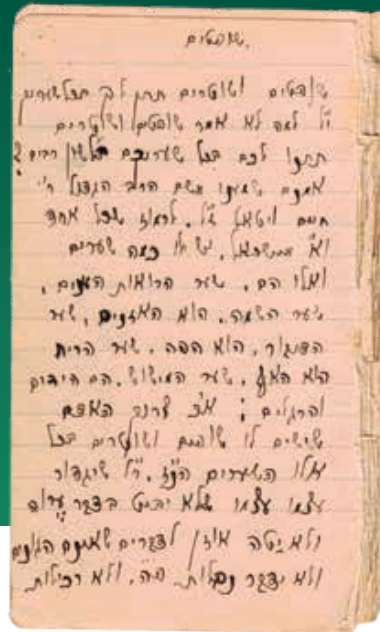 שופטים.
שופטים ושוטרים תתן לך בכל שעריך
י״ל למה לא אמר שופטים ושוטרים
תתנו לכם בכל שעריכם בלשון רבים?
אמנם שמעתי משם הרב הגדול ר׳
חיים ויטאל ז״ל. לרמוז שכל אחד
וא׳ מישראל. יש לו כמה שערים
ואלו הם. שער הראות העינים,
שער השמע. הוא האזנים, שער
הדיבור. הוא הפה. שער הריח
הוא האף. שער המישוש. הם הידים
והרגלים; א״כ צריך האדם
שישים לו שופטים ושוטרים בכל
אלו השערים הנז׳. ר״ל שיגדור
עצמו שלא יביט בדבר ערוה
ולא יטה אוזן לדברים שאינם הגונים
ולא ידבר נבלות פה. ולא רכילות